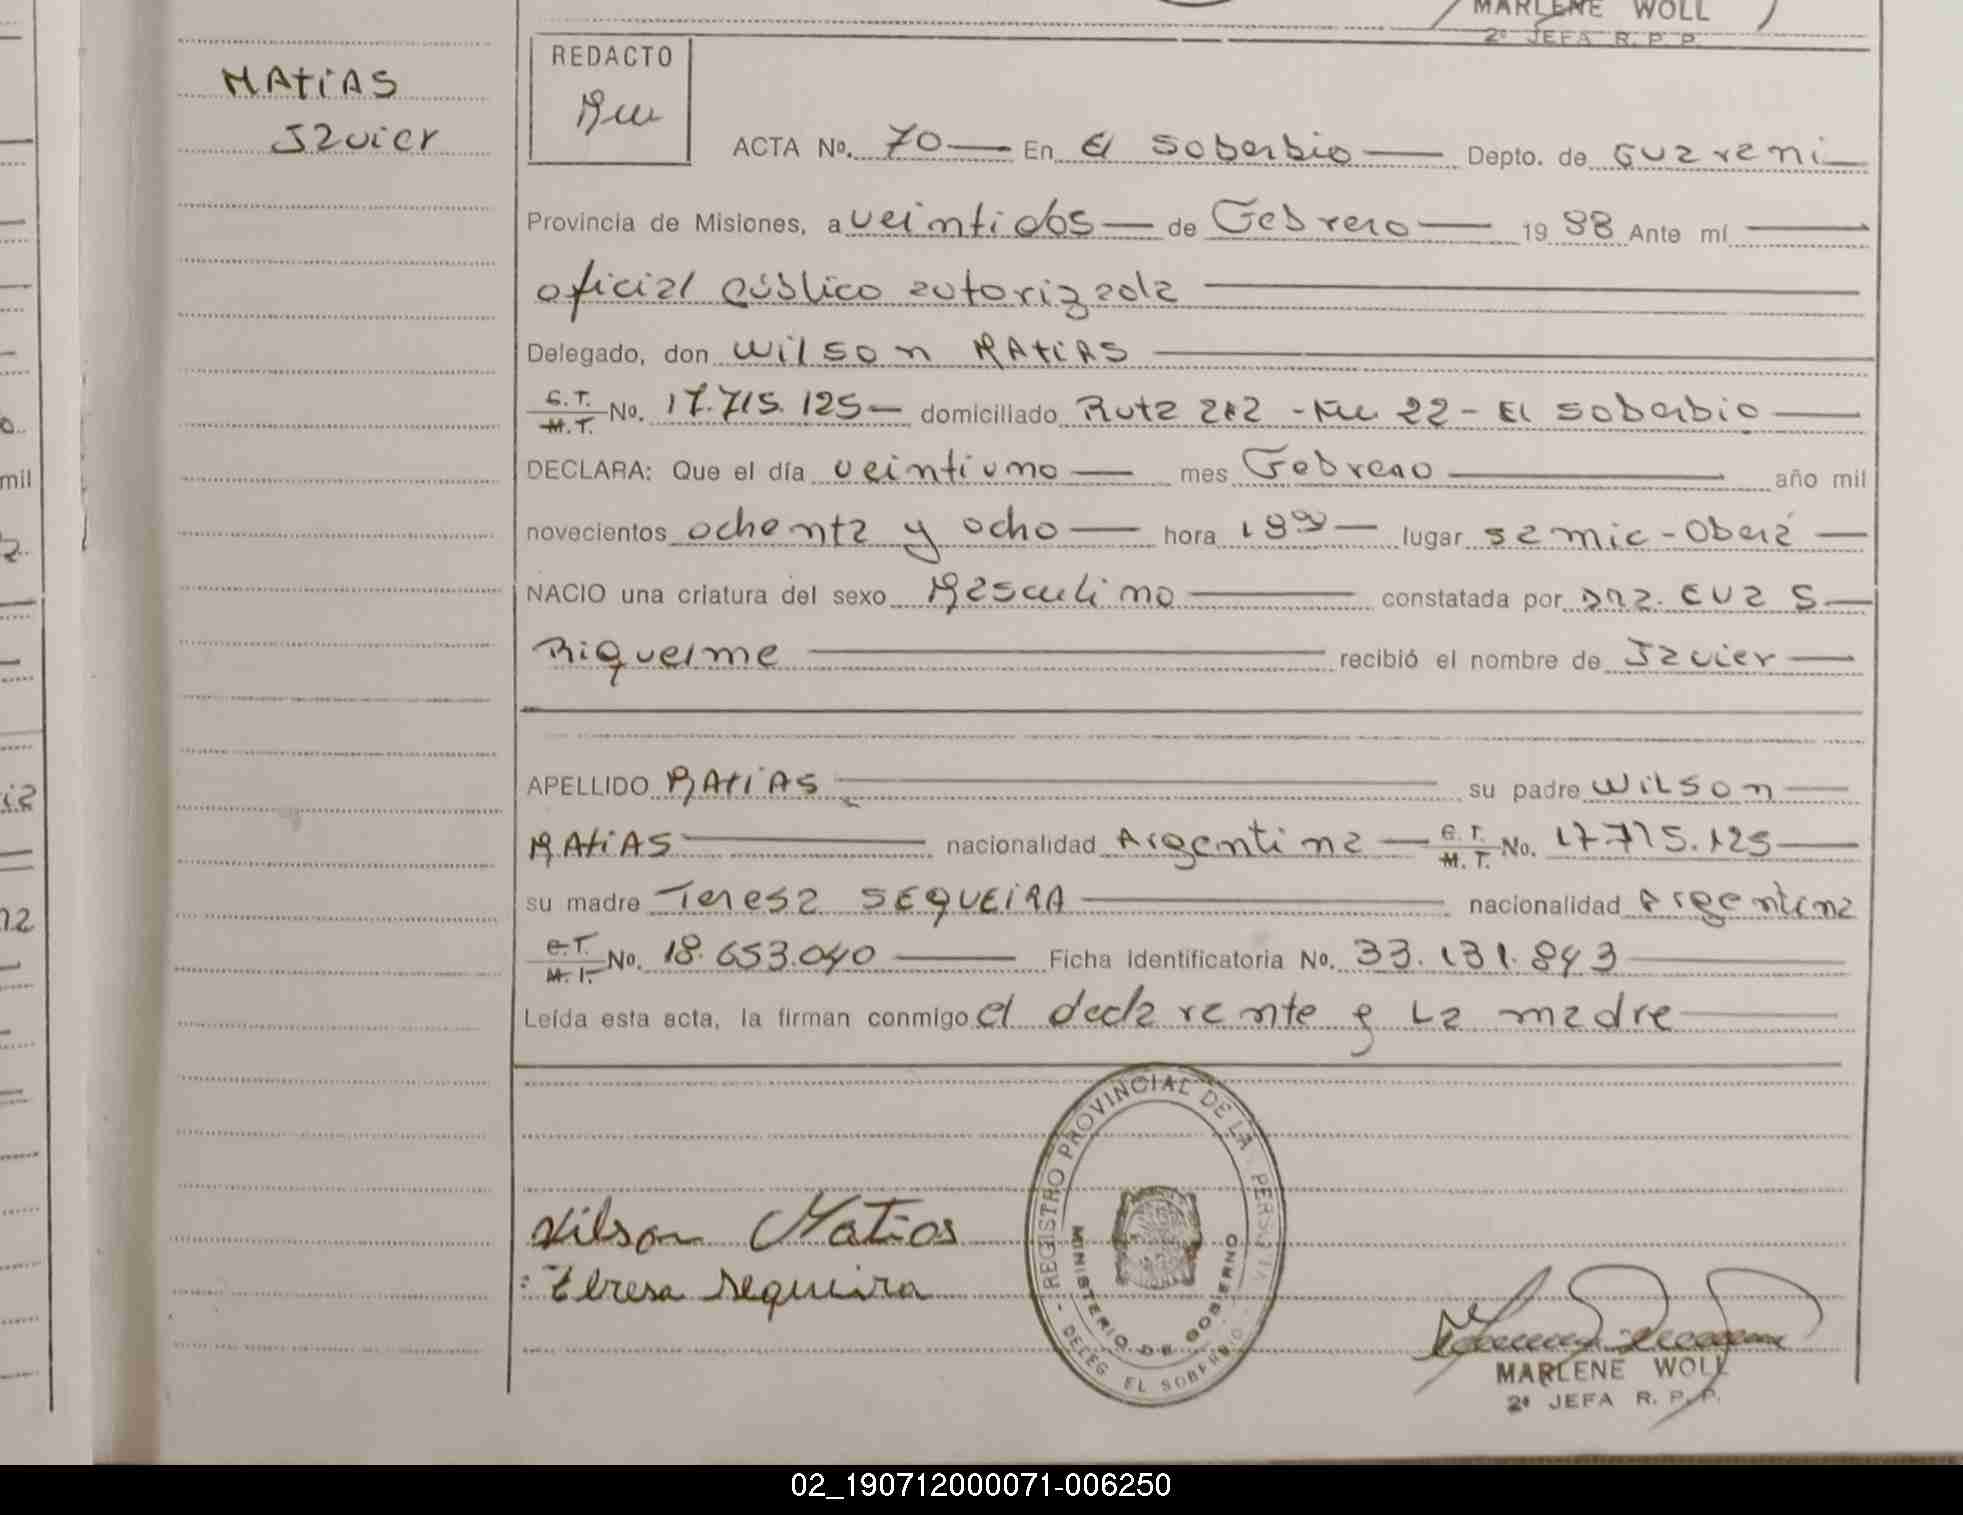 MARLENE WOLL
2ª JEFA R. P. P.
MATIAS
Javier
REDACTO
ACTA No. 70 En El Soberbio Depto. de Guarani
Provincia de Misiones, a veintidos de Febrero 1988 Ante mí
oficial público autorizada
Delegado, don Wilson MATIAS
No. 17.715.125 domiciliado Ruta 212 - Km 22 - El Soberbio
DECLARA: Que el día veintiuno mes Febrero año mil
novecientos ochenta y ocho hora lugar Samic - Oberá
NACIO una criatura del sexo Masculino constatada por Dra. Eva S
Riquelme recibió el nombre de Javier
APELLIDO MATIAS su padre Wilson
MATIAS nacionalidad Argentina M. T. No. 17.715.125
su madre Teresa SEQUEIRA nacionalidad Argentina
No. 18.653.040 Ficha identificatoria No. 33.131.843
Leída esta acta, la firman conmigo el declarante y La madre
REGISTRO PROVINCIAL DE LA PERSONA
MINISTERIO DE GOBIERNO
DELEG EL SOBERBIO
Wilson Matias
Teresa Sequeira
MARLENE WOLL
2ª JEFA R. P. P.
mil
02_190712000071-006250